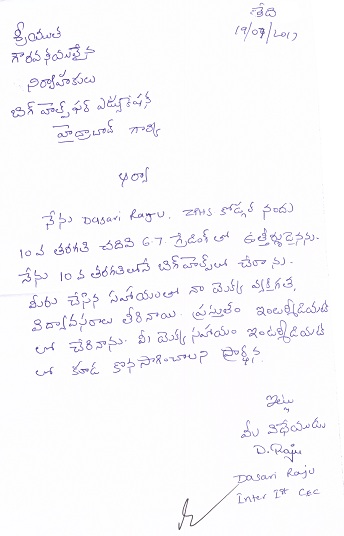 తేది
19/09/2017
శ్రీయుత
గౌరవనీయులైన
నిర్వాహకులు
బిగ్ హెల్ప్ ఫర్ ఎడ్యుకేషన్
హైద్రాబాద్ గార్కి
ఆర్యా
నేను Dasari Raju, ZPHS కోడ్గల్ నందు
10వ తరగతి చదివి 6.7 గ్రేడింగ్ లో ఉత్తీర్ణుడైనను.
నేను 10వ తరగతిలోనే బిగ్ హెల్ప్ లో చేరాను.
మీరు చేసిన సహాయంతో నా యొక్క వ్యక్తిగత,
విద్యావసరాలు తీరినాయి. ప్రస్తుతం ఇంటర్మీడియట్
లో చేరినాను. మీ యొక్క సహాయం ఇంటర్మీడియట్
లో కూడ కొనసాగించాలని ప్రార్థన.
ఇట్లు
మీ విధేయుడు
D. Raju
Dasari Raju
Inter Ist CEC